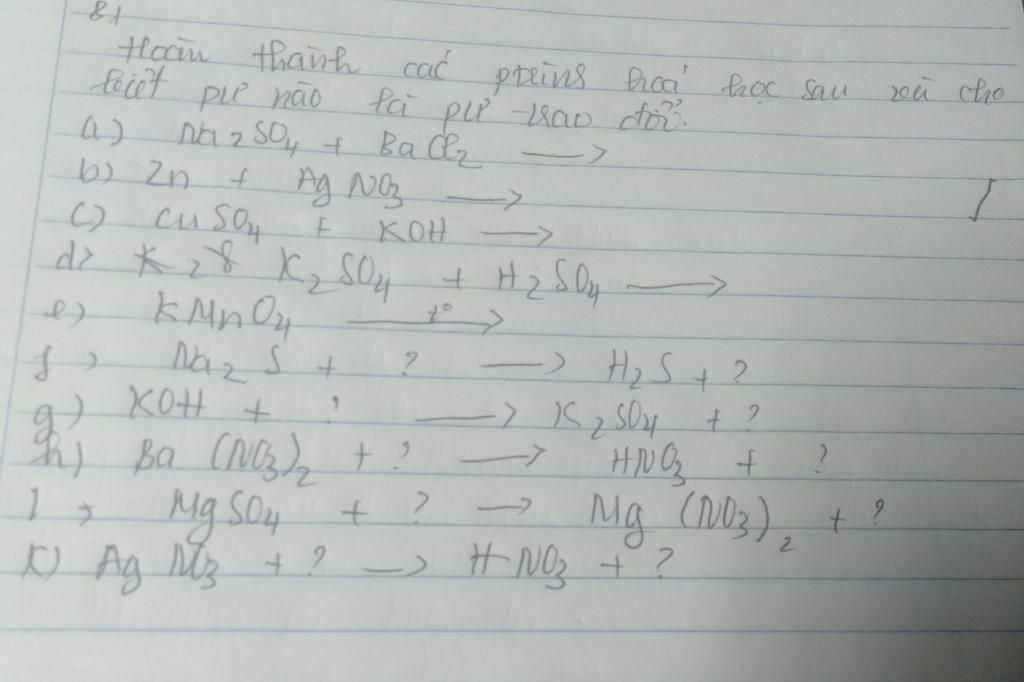 B1
Hoàn thành các ptrings hoá học sau và cho
biết pư nào là pư trao đổi.
a) Na2SO4 + BaCl2 →
b) Zn + AgNO3 →
c) CuSO4 + KOH →
d) K2SO4 + H2SO4 →
e) KMnO4 t° →
f) Na2S + ? → H2S + ?
g) KOH + ? → K2SO4 + ?
h) Ba(NO3)2 + ? → HNO3 + ?
I) MgSO4 + ? → Mg(NO3)2 + ?
K) AgNO3 + ? → HNO3 + ?